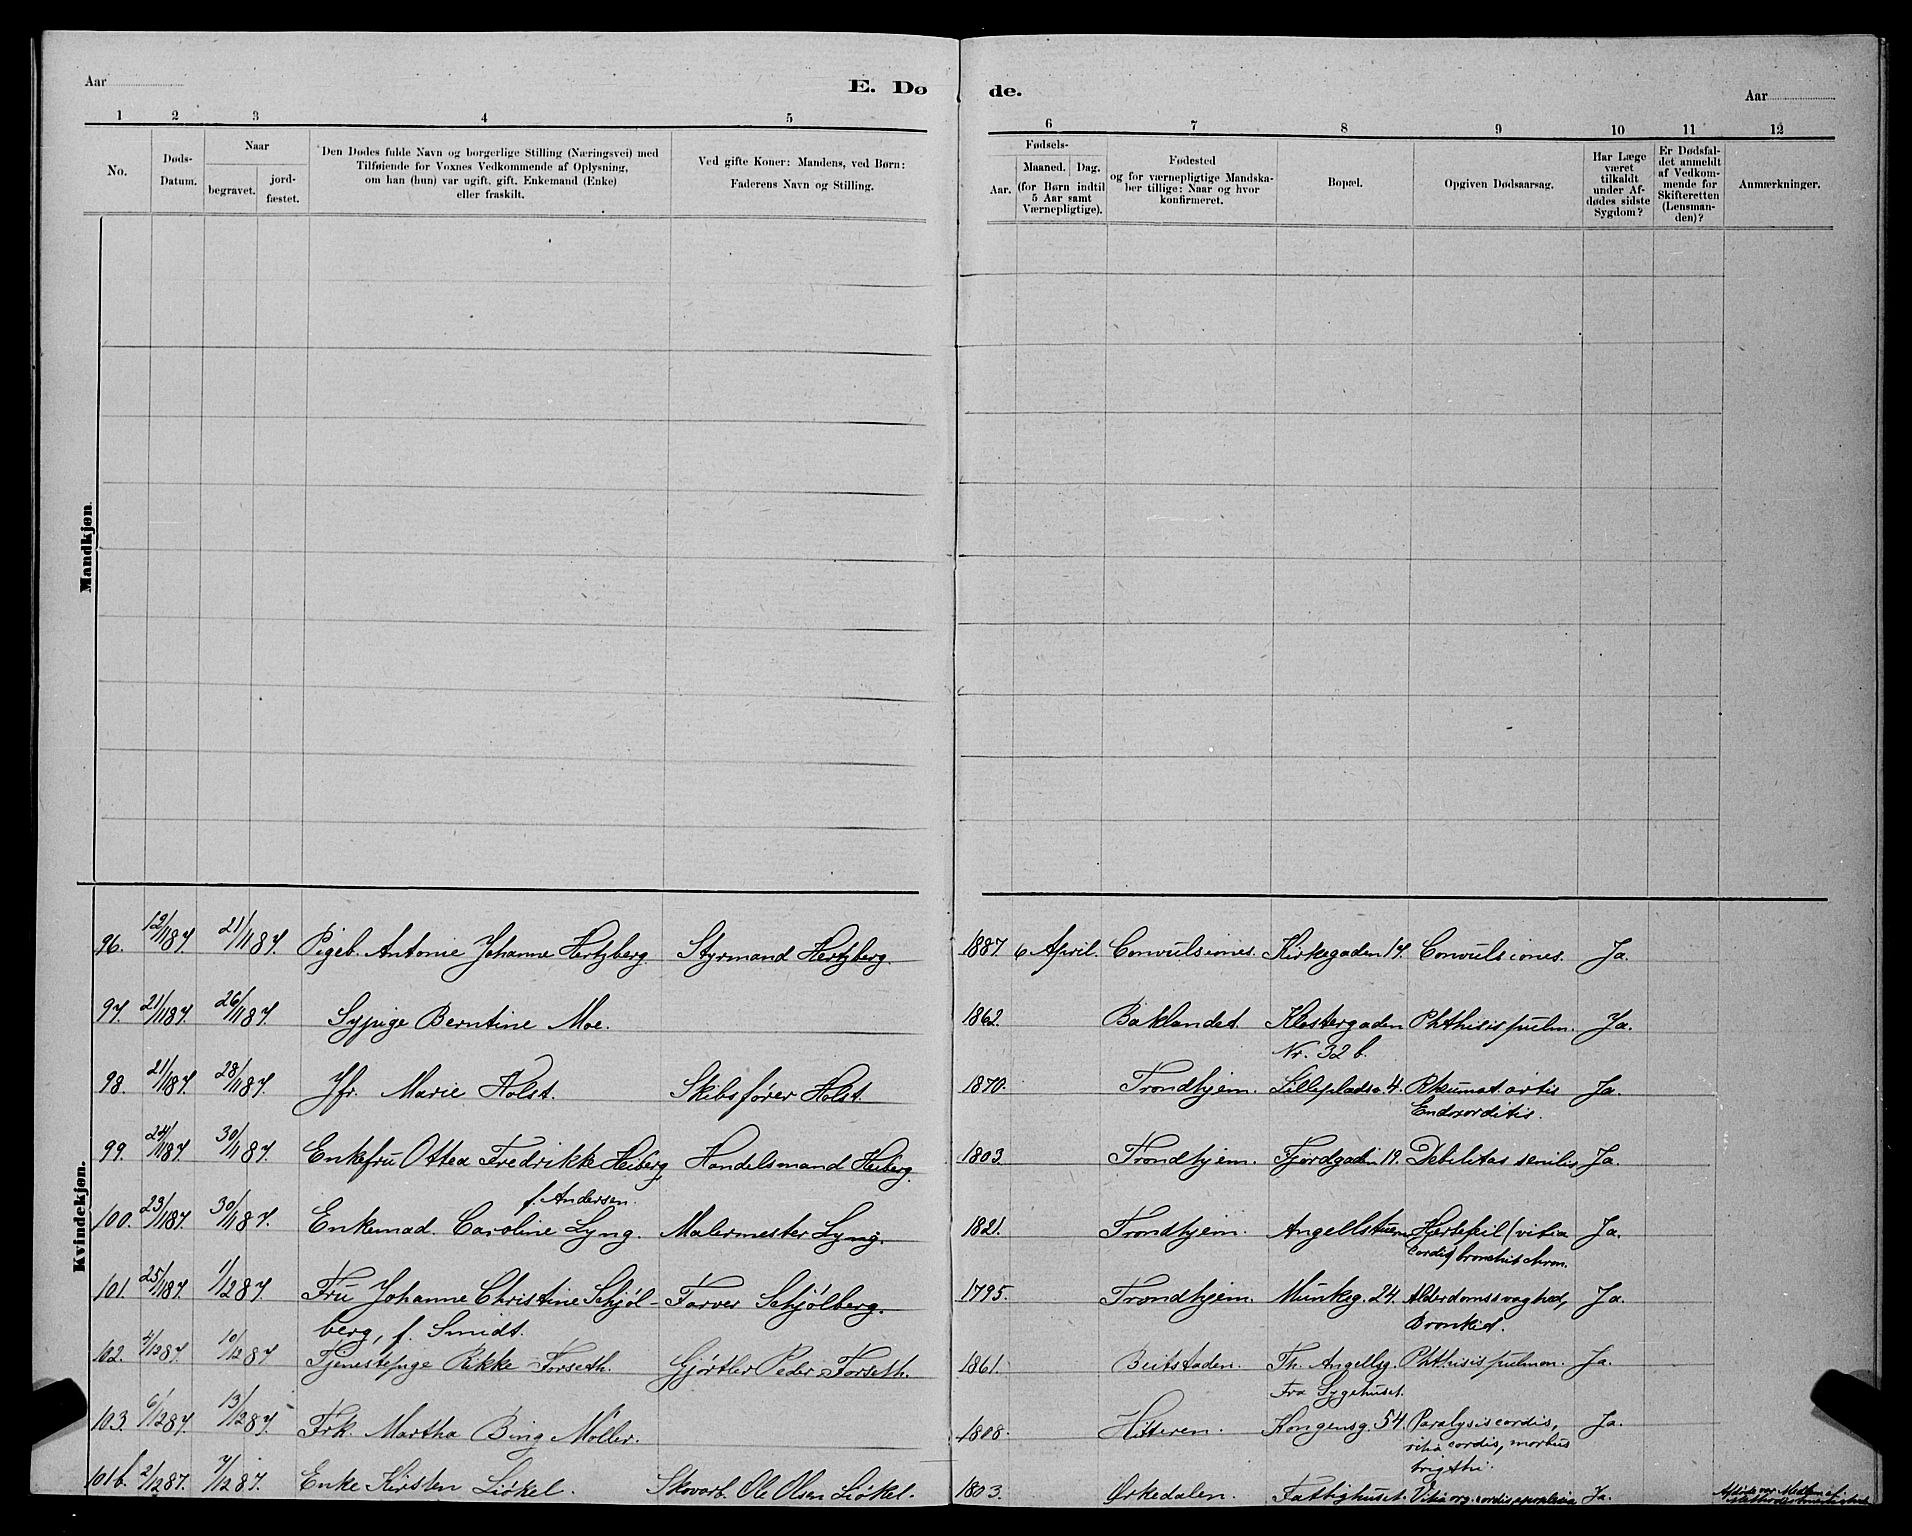 Aar
E. Dø
de.
Aar
1 2 3 4 5
6 7 8 9 10 11 12
No.
Døds-
Datum.
Naar
begravet.
jord-
fæstet.
Den Dødes fulde Navn og borgerlige Stilling (Næringsvei) med
Tilføiende for Voxnes Vedkommende af Oplysning,
om han (hun) var ugift, gift, Enkemand (Enke)
eller fraskilt.
Ved gifte Koner: Mandens, ved Børn:
Faderens Navn og Stilling.
Fødsels-
Aar.
Maaned. Dag.
(for Børn indtil
5 Aar samt
Værnepligtige).
Fødested
og for værnepligtige Mandska-
ber tillige: Naar og hvor
konfirmeret.
Bopæl.
Opgiven Dødsaarsag.
Har Læge
været
tilkaldt
under Af-
dødes sidste
Sygdom?
Er Dødsfal-
det anmeldt
af Vedkom-
mende for
Skifteretten
(Lensman-
den)?
Anmærkninger.
Mandkjøn.
Kvindekjøn.
96. 12/11 87. 21/11 87. Pigeb. Antonie Johanne Hertzberg Styrmand Hertzberg. 1887. 6 April. Convulsiones. Kirkegaden 14. Convulsiones. Ja.
97. 21/11 87. 26/11 87. Sypige Berntine Moe. 1862. Baklandet. Klostergaden Phthisis pulm. Ja.
Nr. 32 b.
98. 21/11 87. 28/11 87. Jfr. Marie Holst. Skibsfører Holst. 1870. Trondhjem. Lilleplads. 4. Rheumat. artis Ja.
Endocorditis.
99. 24/11 87 30/11 87. Enkefru Ottea Fredrikke Heiberg Handelsmand Heiberg. 1803. Trondhjem. Fjordgaden 19. Debilitas senilis Ja.
f. Andersen.
100. 23/11 87. 30/11 87. Enkemad. Caroline Lyng. Malermester Lyng. 1821. Trondhjem. Angellstuen Hjertefeil (vitia Ja.
cordis) bronchit chron.
101. 25/11 87. 1/12 87 Fru Johanne Christine Schjöl- Farver Schjölberg. 1795. Trondhjem. Munkeg. 24. Alderdomssvaghed, Ja.
berg, f. Smidt. Bronkit.
102. 4/12 87. 10/12 87 Tjenestepige Rikke Forseth. Gjørtler Peder Forseth. 1861. Beitstaden. Th. Angellsg. Phthisis pulmon. Ja.
Fra Sygehuset.
103. 6/12 87. 13/12 87. Frk. Martha Bing Möller. 1808. Hitteren. Kongensg. 54. Paralysis cordis, Ja.
vitia cordis, morbus
brigthi.
101b. 2/12 87. 7/12 87. Enke Kirsten Liøkel. Skovarb. Ole Olsen Liøkel. 1803. Ørkedalen. Fattighuset. Vitia org. cordis Ja.